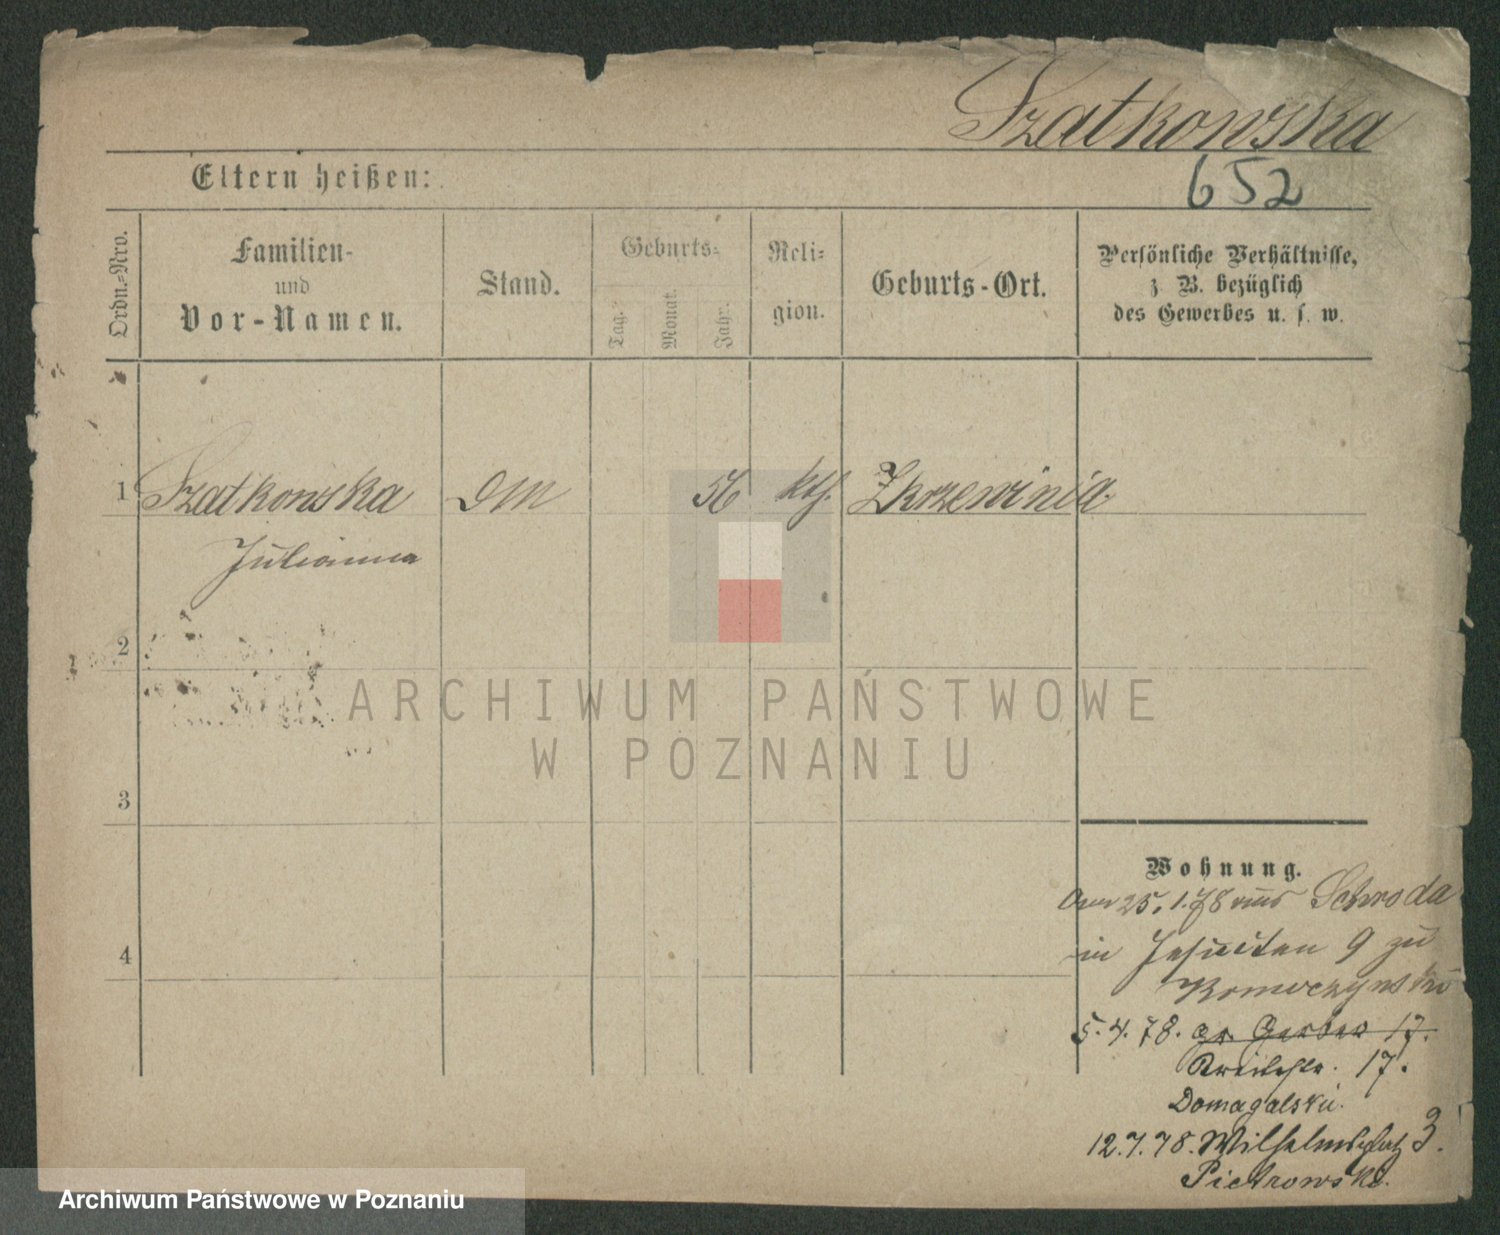 Szatkowska
652
Eltern heißen:
Ordn.-Nro.
Familien-
und
Vor-Namen.
Stand.
Geburts-
Tag.
Monat.
Jahr.
Reli-
gion.
Geburts-Ort.
Persönliche Verhältnisse,
z. B. bezüglich
des Gewerbes u. s. w.
1 Szatkowska DM 56 kth. Zkrzewinia.
Julianna
2
3
4
Wohnung.
25.1.78 aus Schroda
in Jesuiten 9 zu
5.4.78. gr. Gerber 17.
17.
Domagalski.
12.7.78. Wilhelmsplatz 3.
Pietrowski.
ARCHIWUM PAŃSTWOWE
W POZNANIU
Archiwum Państwowe w Poznaniu